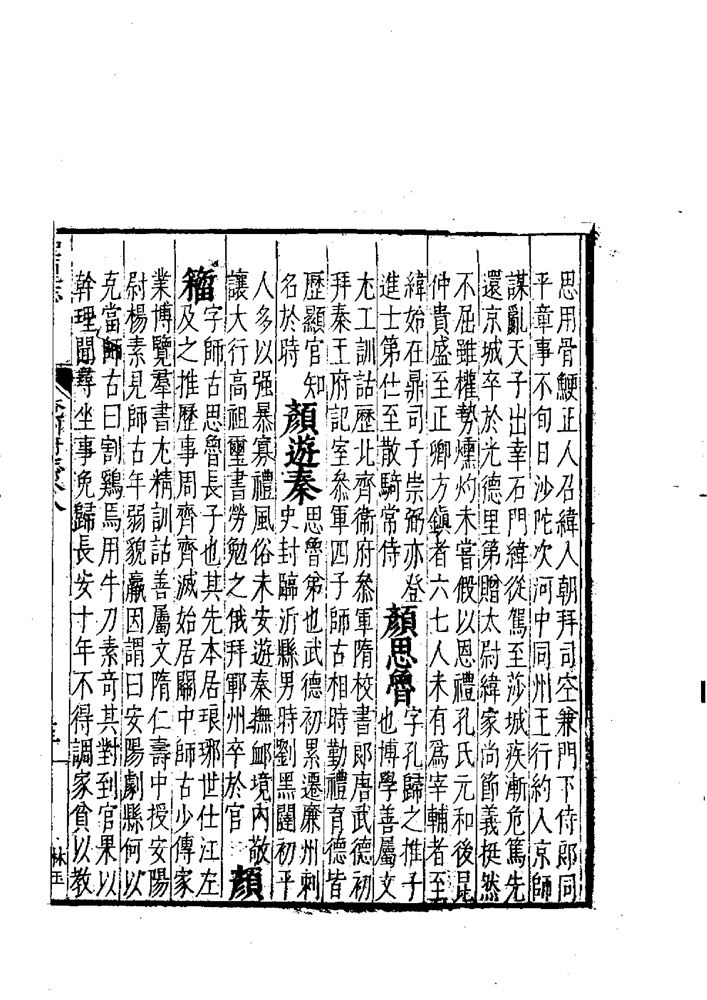 思用骨鯁正人召緯入朝拜司空兼門下侍郎同
平章事不旬日沙陀次河中同州王行約入京師
謀亂天子出幸石門緯從駕至莎城疾漸危篤先
還京城卒於光德里第贈太尉緯家尚節義挺然
不屈雖權勢燻灼未嘗假以恩禮孔氏元和後昆
仲貴盛至正卿方鎮者六七人未有爲宰輔者至
緯始在鼎司子崇弼亦登
進士第仕至散騎常侍
顏思魯
字孔歸之推子
也博學善屬文
尤工訓詁歷北齊衞府叅軍隋校書郎唐武德初
拜秦王府記室叅軍四子師古相時勤禮育德皆
歷顯官知
名於時
顏遊秦
思魯弟也武德初累遷廉州刺
史封臨沂縣男時劉黑闥初平
人多以强暴寡禮風俗未安遊秦撫䘏境内敬
讓大行高祖璽書勞勉之俄拜鄆州卒於官
顏
籀
字師古思魯長子也其先本居琅琊世仕江左
及之推歷事周齊齊滅始居關中師古少傳家
業博覽羣書尤精訓詁善屬文隋仁壽中授安陽
尉楊素見師古年弱貌羸因謂曰安陽劇縣何以
克當師古曰割鷄焉用牛刀素竒其對到官果以
幹理聞尋坐事免歸長安十年不得調家貧以教